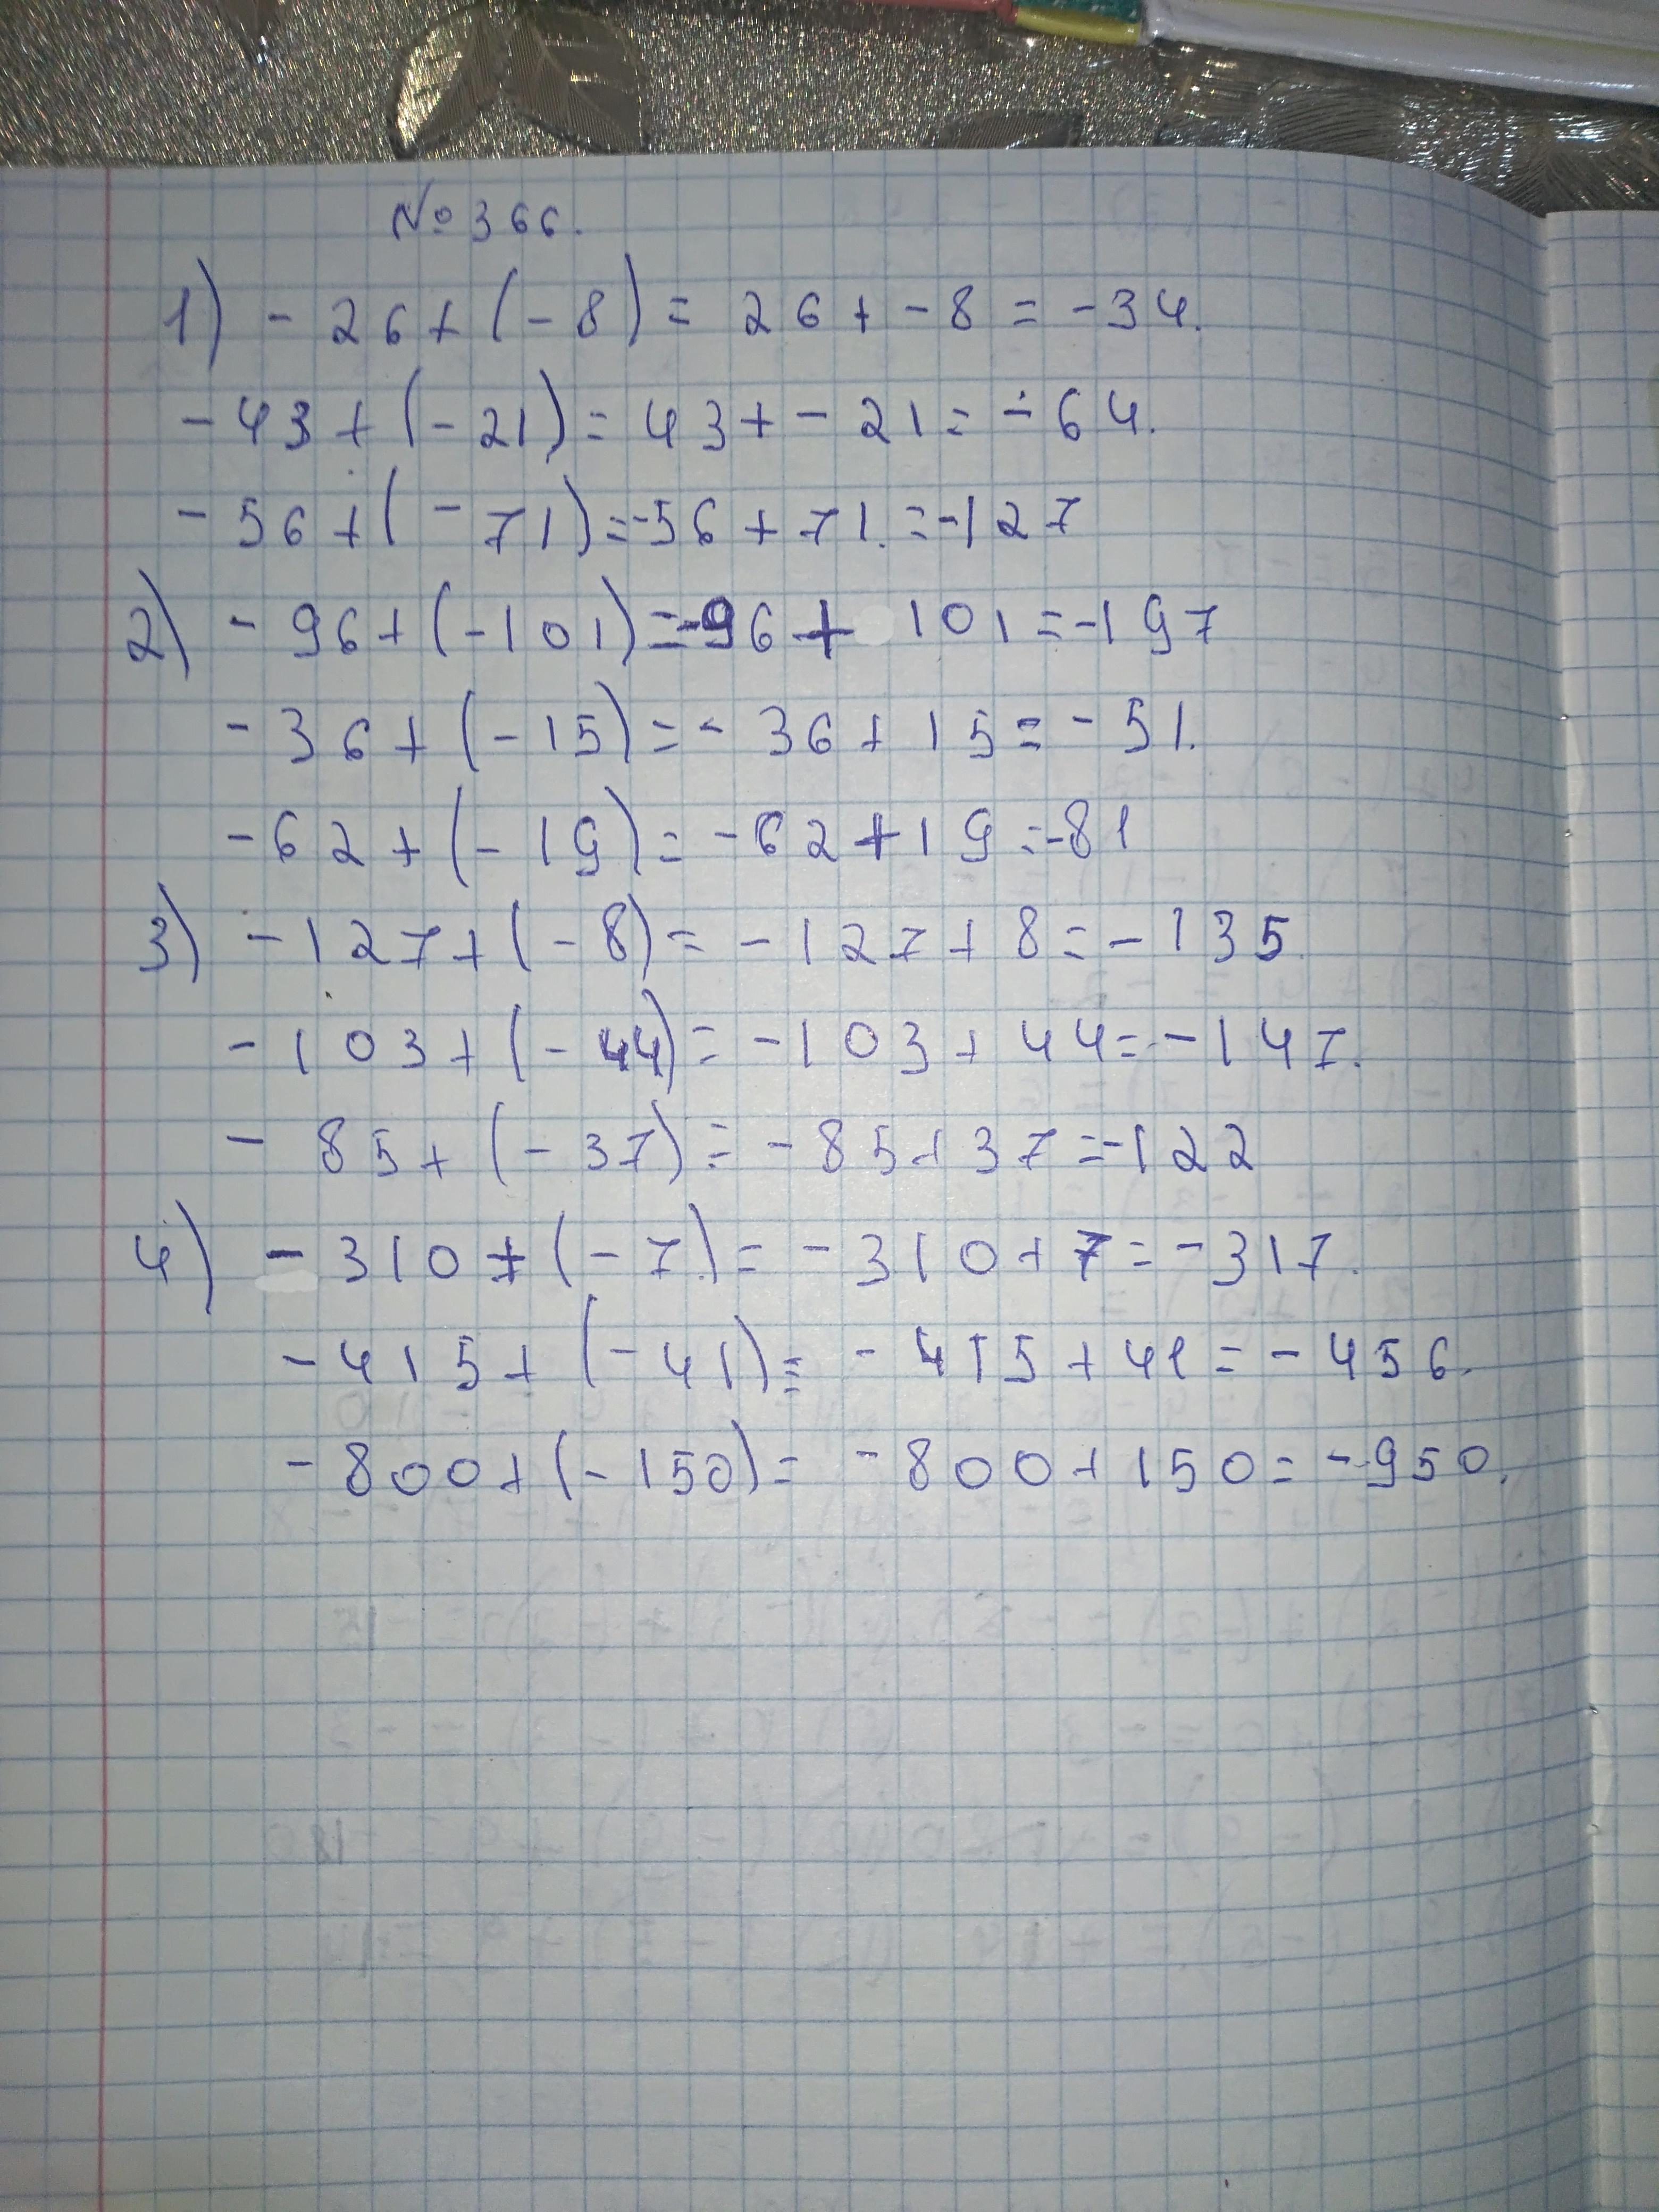 № 366.
1) - 26 + (- 8) = 26 + - 8 = - 34.
- 43 + (- 21) = 43 + - 21 = - 64.
- 56 + (- 71) = -56 + 71. = -127
2) - 96 + (- 101) = -96 + 101 = -197
- 36 + (- 15) = - 36 + 15 = - 51.
- 62 + (- 19) = - 62 + 19 = -81
3) - 127 + (- 8) = - 127 + 8 = - 135.
- 103 + (- 44) = - 103 + 44 = - 147.
- 85 + (- 37) = - 85 + 37 = -122
4) - 310 + (- 7) = - 310 + 7 = - 317.
- 415 + (- 41) = - 415 + 41 = - 456.
- 800 + (- 150) = - 800 + 150 = - 950.